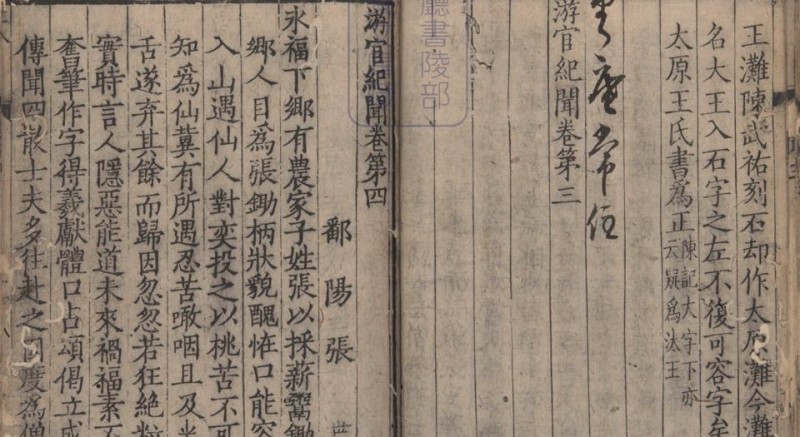 王灘陳武祐刻石却作太原灘今灘
名大王入石字之左不復可容字矣
太原王氏書為正
陳記大字下亦
云疑為汰王
庵常住
游宦紀聞卷第三
廳書陵部
游宦紀聞卷第四
鄱陽張
永福下鄉有農家子姓張以採薪鬻鋤
鄉人目為張鋤柄狀貌醜怪口能容
入山遇仙人對奕投之以桃苦不可
知為仙冀有所遇忍苦噉咽且及半
舌遂弃其餘而歸因忽忽若狂絕粒
實時言人隱惡能道未來禍福素不
奮筆作字得羲獻體口占頌偈立成
傳聞四散士夫多往赴之因度為僧